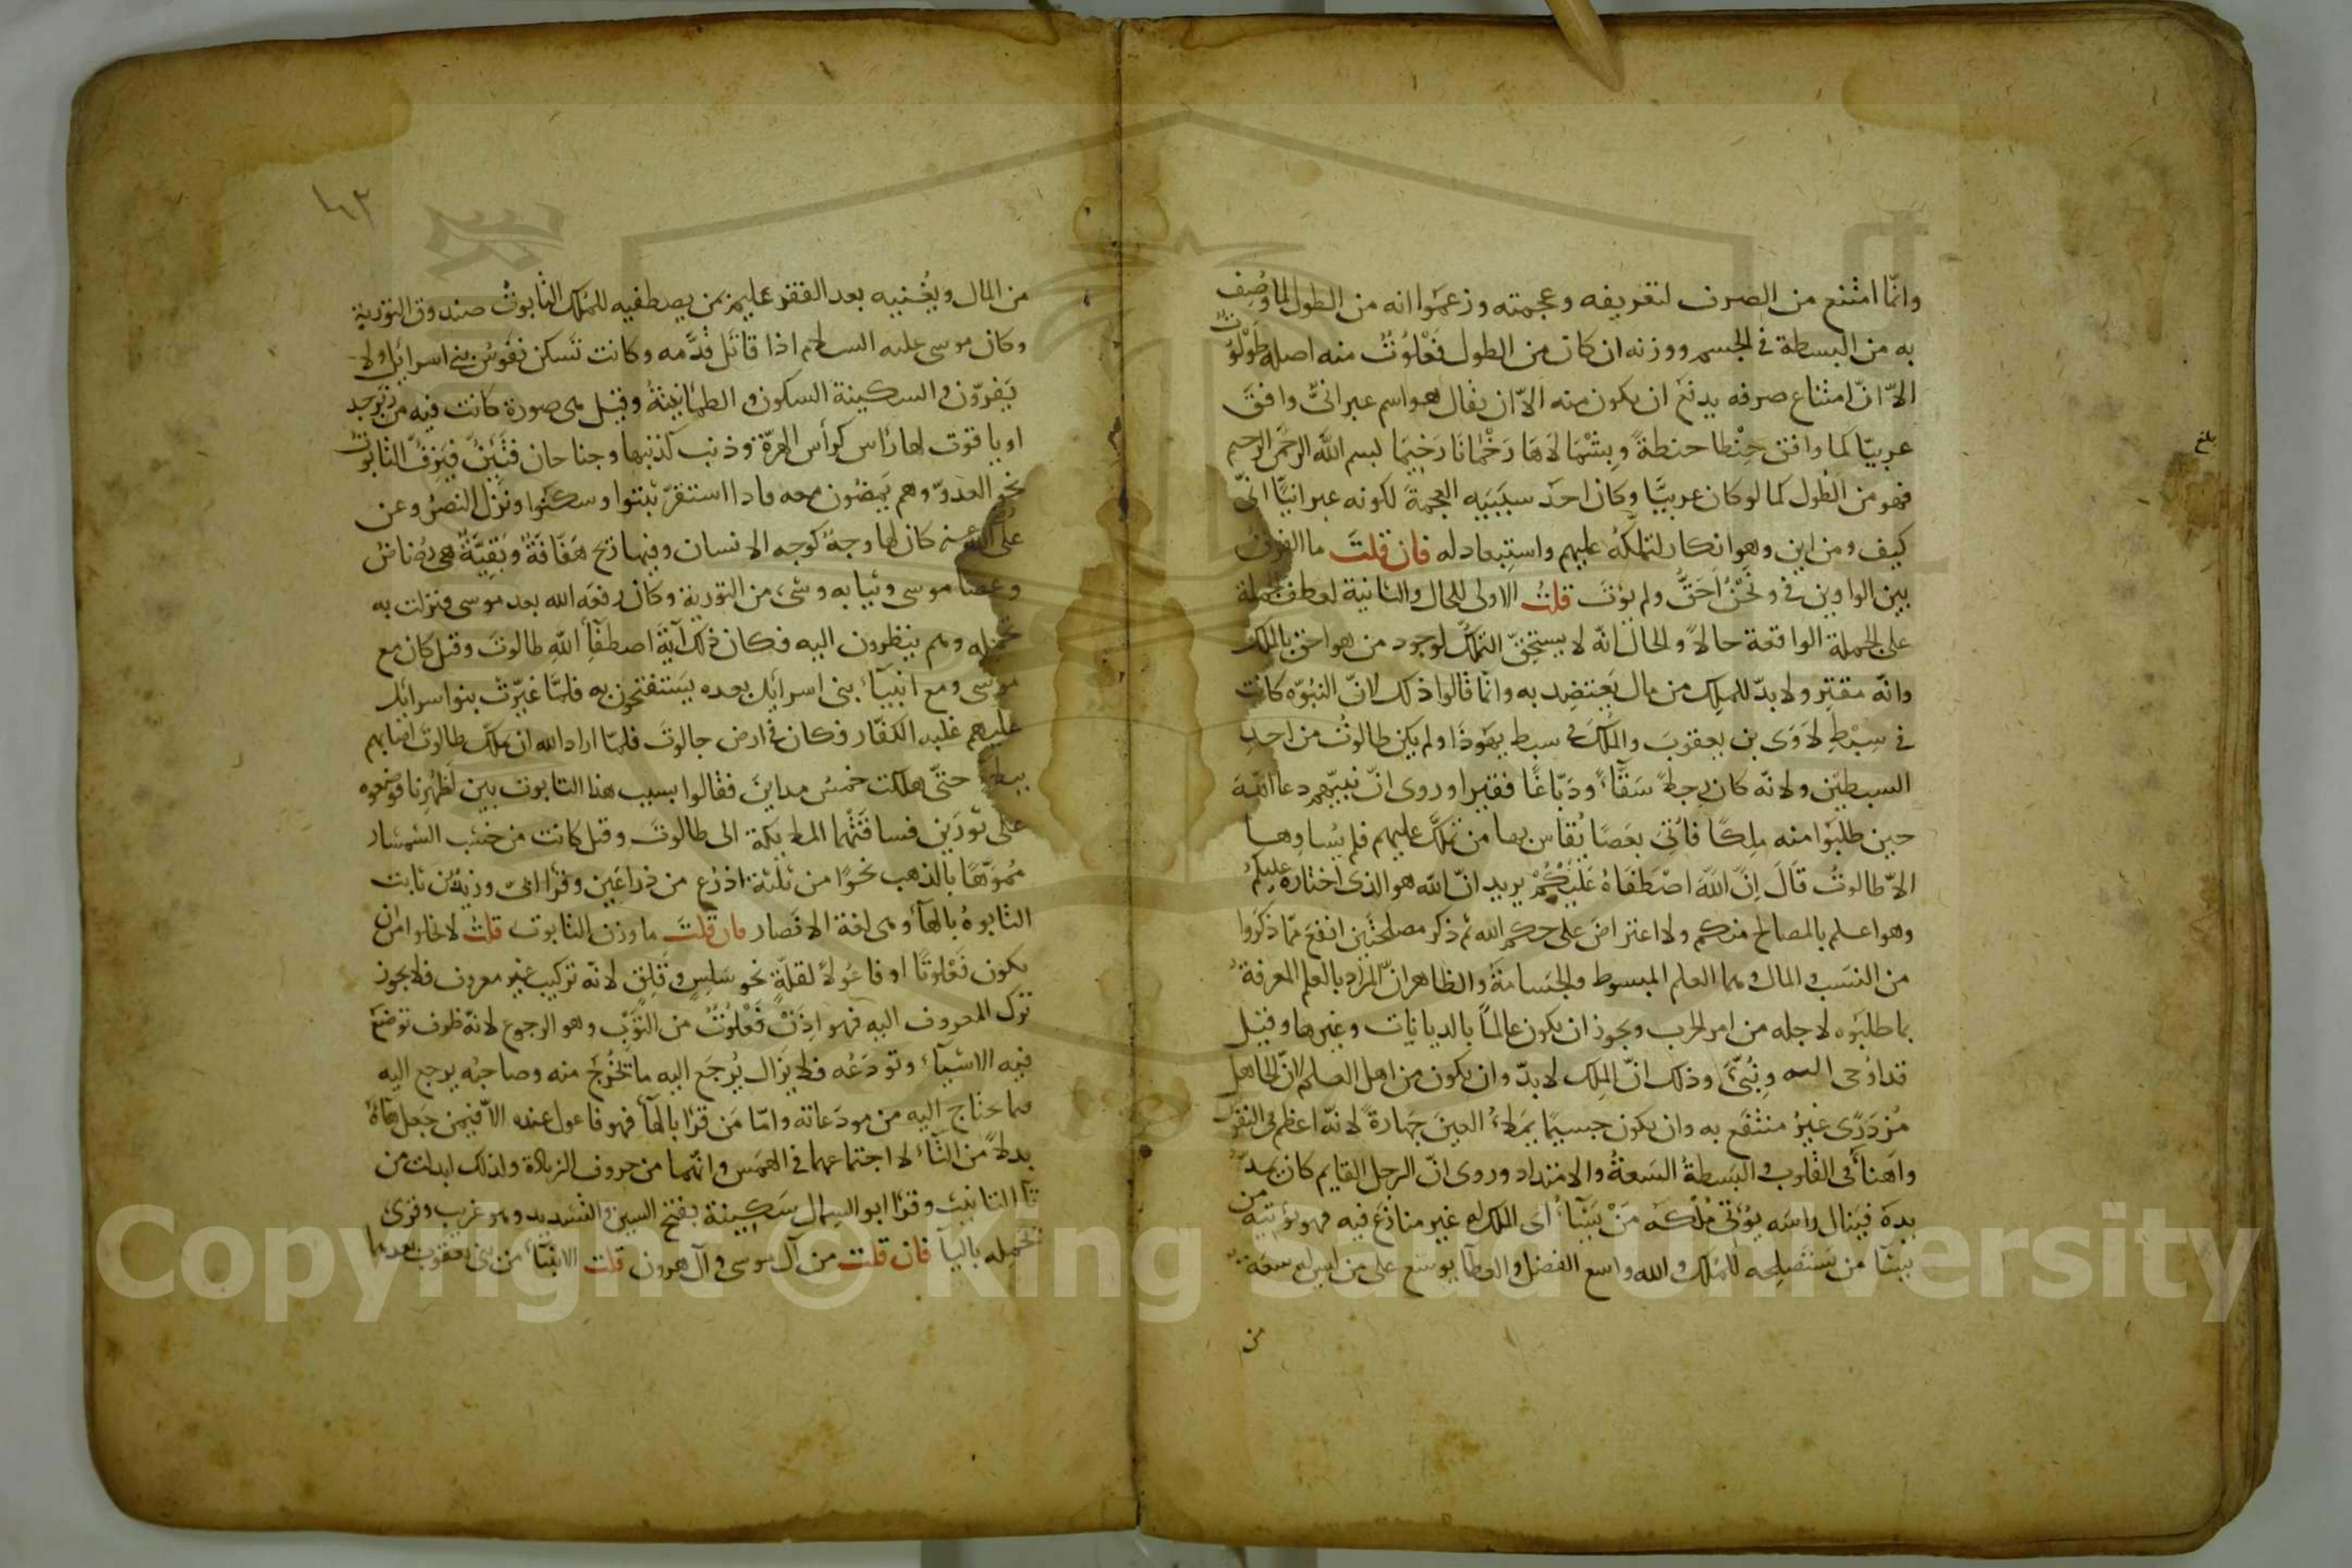 وانّما امتنع من الصرف لتعريفه وعجمته وزعموا انه من الطول لما وُصِف
به من البسطة في الجسم ووزنه ان كان من الطول فَعْلُوتٌ منه اصله طَوْلُوتٌ
الاّ انّ امتناع صرفه يدفع ان يكون منه الاّ ان يقال هو اسم عبرانىٌّ وافق
عربيّا كما وافق حِنْطا حنطةً وبِشْمَا لاَهَا رَخْمَانَا رَخِيمَا بسم الله الرحمن الرحيم
فهو من الطول كما لو كان عربيًّا وكان احدَ سببَيه العجمةُ لكونه عبرانيًّا انّى
كيف ومن اين وهو انكار لتملّكه عليهم واستبعاد له فان قلتَ ما الفرق
بين الواوين في ونَحْنُ اَحَقُّ ولم يؤتَ قلتُ الاولى للحال والثانية لعطف الجملة
على الجملة الواقعة حالاً والحال انّه لا يستحقّ التملّك لوجود من هو احق بالملك
وانّه مقتِر ولا بدّ للملِك من مال يَعتضِد به وانّما قالوا ذلك لانّ النبوّه كانت
في سِبْطِ لاوَى بن يعقوبَ والمُلكَ في سبط يهوذا ولم يكن طالوتُ من احدِ
السبطَين ولانّه كان رجلا سَقّاءً ودَبّاغًا فقيرا وروى انّ نبيّهم دعا اللّه
حين طلبَوا منه ملِكًا فاُتىَ بعَصًا يُقاس بها من يَملك عليهم فلم يُساوِها
الاّ طالوتُ قَالَ اِنَّ اللّهَ اصْطَفَاهُ عَلَيْكُمْ يريد انّ الله هو الذى اختاره عليكم
وهو اعلم بالمصالح منكم ولا اعتراضَ على حكم الله ثم ذكر مصلحتَين انفعَ ممّا ذكَروا
من النسَب والمال وهما العلم المبسوط والجَسامةُ والظاهر انّ المراد بالعلم المعرفةُ
بما طلبَوه لاجله من امر الحرب ويجوز ان يكون عالماً بالديانات وغيرها وقيل
قد اُوحى اليه ونُبّئَ وذلك انّ الملِك لا بدّ وان يكون من اهل العلم لانّ الجاهل
مُزدَرًى غيرُ منتَفَع به وان يكون جسيمًا يملاُ العينَ جَهارةً لانّه اعظم في النفوس
واَهيَأُ في القلوب والبَسطةُ السَعةُ والامتداد وروى انّ الرجل القايم كان يمدّ
يده فينال راسَه يُؤتى مُلْكَهُ مَنْ يَشَآءُ اَى الملك له غير منازَع فيه فهو يؤتيه من
يشآ من يَستصلِحه للمُلك والله واسع الفضل والعطآ يوسّع على من ليس له سعة
من
بلغ
من المال ويُغنيه بعد الفقر عليم بمن يصطفيه للمُلك التّابوتُ صندوق التورية
وكان موسى عليه السلام اذا قاتل قدّمه وكانت تَسكن نفوسُ بنى اسرائل ولا
يَفرّون والسكينة السكون والطمانينةُ وقيل هى صورة كانت فيه من زبرجد
او ياقوت لها رَاس كرأس الهرّة وذنب كذنبها وجناحان فتَئِنُّ فيَزِفُّ التابوتُ
نحوَ العدوّ وهم يَمضُون معه فاذا استقرّ ثبتوا وسكنوا ونزل النصرُ وعن
على الله عنه كان لها وجهٌ كوجه الانسان وفيها ريح هَفّافةٌ وبَقِيَّةٌ هى رُضاضُ
وعصا موسى وثيابه وشئ من التورية وكان رفعَه الله بعد موسى فنزلت به
تحمله وهم ينظرون اليه فكان ذلك آيةَ اصطفآءِ الله طالوتَ وقيل كان مع
موسى ومع انبيآء بنى اسرائل بعده يَستفتحون به فلمّا غيّرتْ بنو اسرائل
عليهم عليه الكفّار فكان في ارض جالوتَ فلمّا اراد الله ان يملّك طالوتَ اصابهم
ببلاء حتّى هلكت خمسُ مداينَ فقالوا بسبب هذا التابوت بين اَظهُرِنا فوضعوه
على ثورَين فساقَتْهما الملايكة الى طالوتَ وقيل كانت من خشب الشمشار
مُموَّهًا بالذهب نحوًا من ثلثة اذرُع من ذراعَين وقرا اُبىّ وزيدُ بن ثابت
التابوهُ بالهآء وهى لغة الانصار فان قلتَ ما وزن التابوت قلتُ لا يخلوا من ان
يكون فَعْلوتًا او فاعُولاً لقلّةٍ نحوِ سَلِسٍ وقَلِقٍ لانّه تركيب غير معروف فلا يجوز
ترك المعروف اليه فهو اِذَنْ فَعْلُوتٌ من التَّوْبِ وهو الرجوع لانّه ظرف توضع
فيه الاشيآءُ وتودَعُه فلا يزال يُرجَع اليه ما يَخْرُجُ منه وصاحبُه يرجع اليه
فيما يحتاج اليه من مودَعاته وامّا مَن قرا بالهآء فهو فاعول عنده الاّ فيمن جعل هاءَهُ
بدلاً من التّآء لاجتماعهما في الهمس وانّهما من حروف الزيادة ولذلك ابدلت من
تآ التانيث وقرا ابو السمال سَكِّينة بفتح السين والتشديد وهو غريب وقرئ
يحمله باليآ فان قلت مَن آل موسى وآل هرون قلت الانبيآء من بنى يعقوب بعدهما